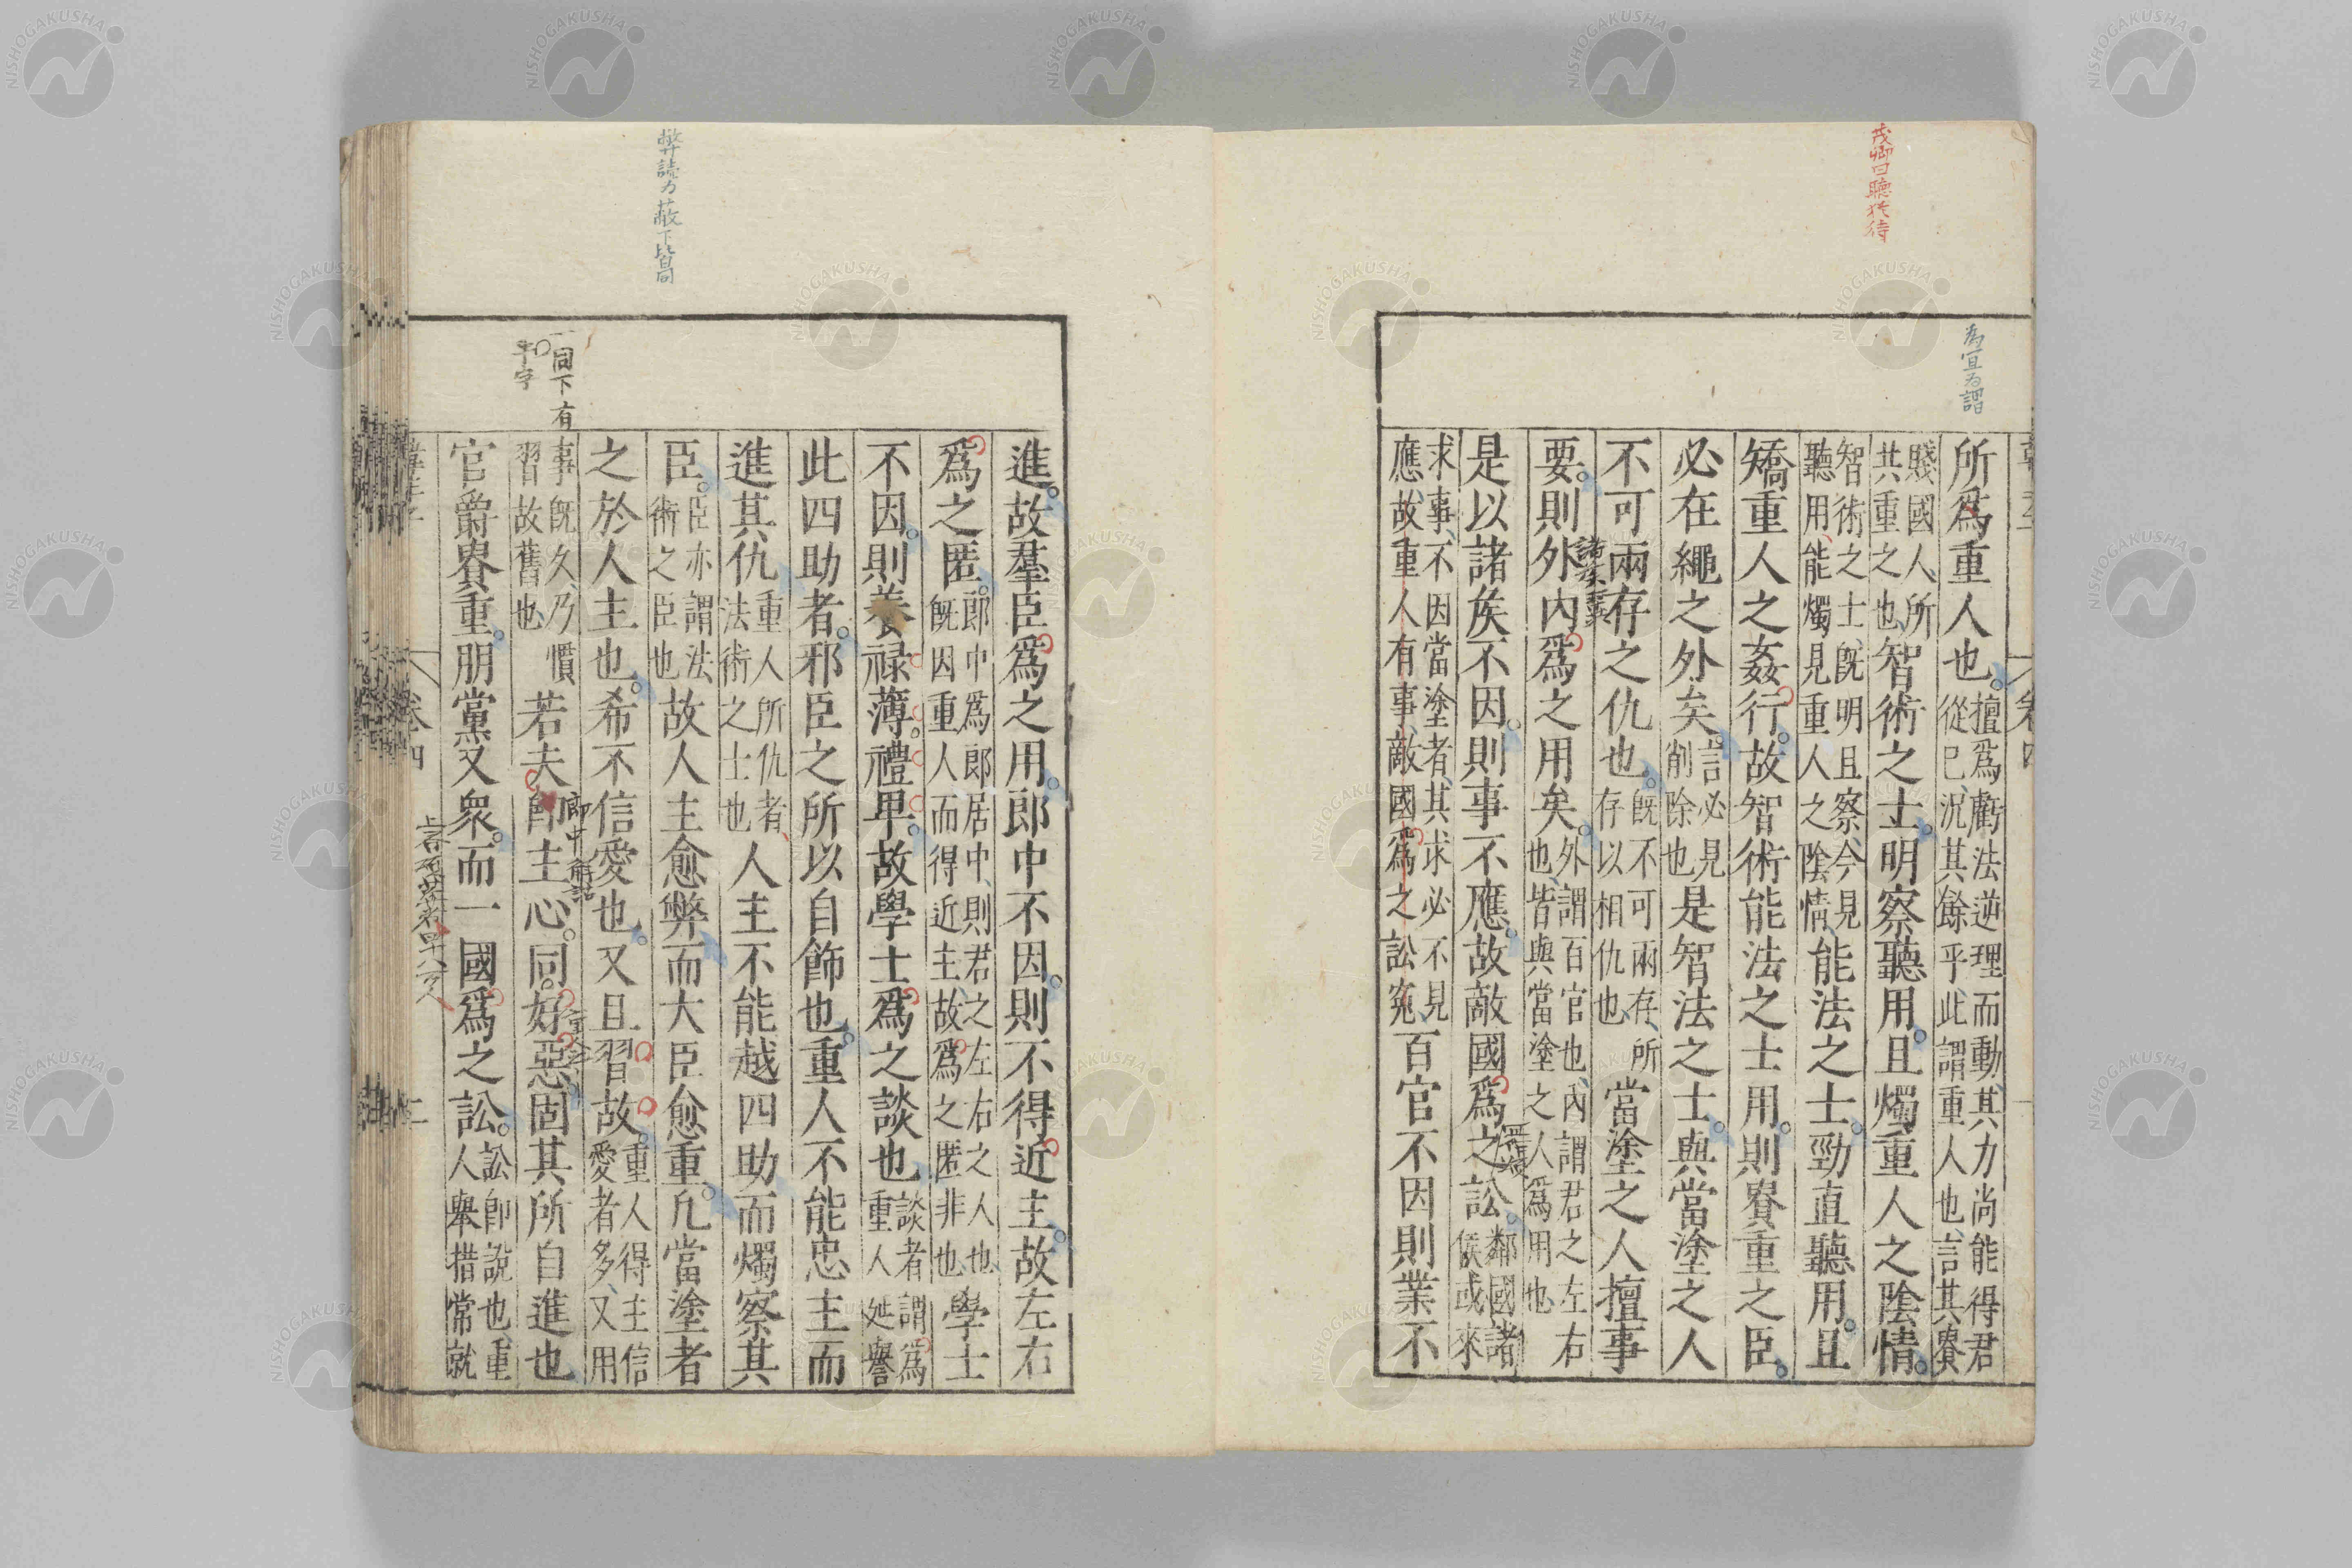 茂卿曰聽猶待
為宜為謂
所爲重人也擅爲虧法逆理而動其力尚能得君
從已況其餘乎此謂重人也言其貴
賤國人所
共重之也智術之士明察聽用且燭重人之陰情
智術之士旣明且察今見
聽用能燭見重人之陰情能法之士勁直聽用且
矯重人之姦行故智術能法之士用則貴重之臣
必在繩之外矣言必見
削除也是智法之士與當塗之人
不可兩存之仇也旣不可兩存所
存以相仇也當塗之人擅事
要則外内爲之用矣外謂百官也内謂君之左右
也皆與當塗之人爲用也
是以諸矦不因則事不應故敵國爲之訟鄰國諸
侯或來
求事不因當塗者其求必不見
應故重人有事敵國爲之訟寃百官不因則業不
弊読為蔽下皆同
進故羣臣爲之用郎中不因則不得近主故左右
爲之匿郎中爲郎居中則君之左右之人也
旣因重人而得近主故爲之匿非也學士
不因則養祿薄禮卑故學士爲之談也談者謂爲
重人延譽
此四助者邪臣之所以自飾也重人不能忠主而
進其仇重人所仇者
法術之士也人主不能越四助而燭察其
臣臣亦謂法
術之臣也故人主愈弊而大臣愈重凡當塗者
之於人主也希不信愛也又且習故重人得主信
愛者多又用
一同下有
乎字
事旣久乃慣
習故舊也若夫卽主心同好惡固其所自進也
官爵貴重朋黨又衆而一國爲之訟訟卽說也重
人舉措常就
卷四
NISHOGAKUSHA